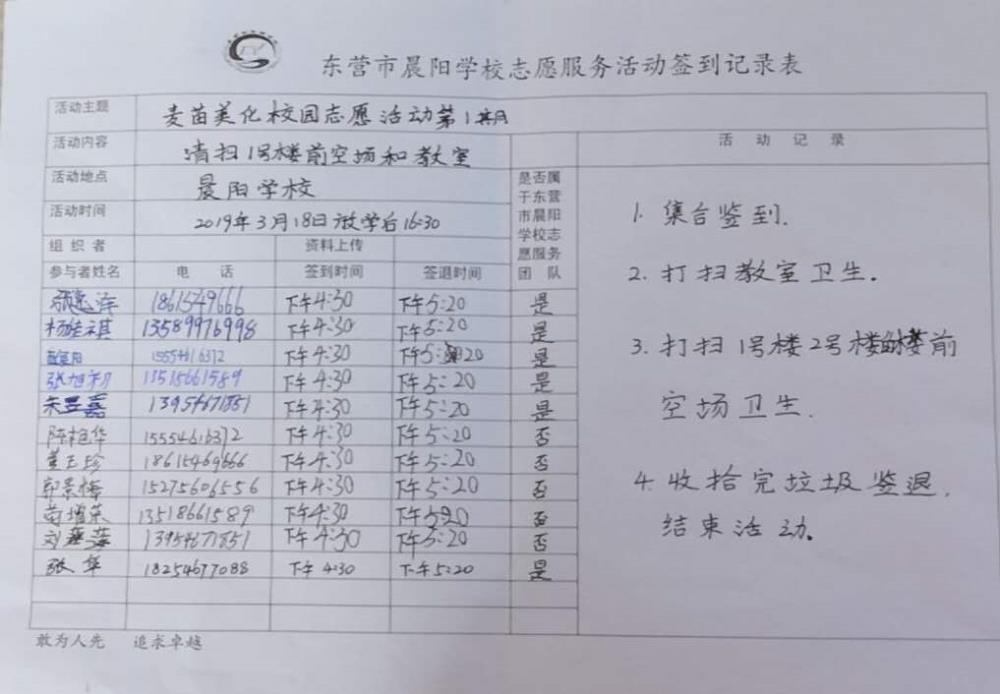 东营市晨阳学校志愿服务活动签到记录表
活动主题 麦苗美化校园志愿活动第1期
活动内容 清扫1号楼前空场和教室
活动地点 晨阳学校
活动时间 2019年3月18日放学后16:30
组织者 资料上传
是否属于东营市晨阳学校志愿服务团队
参与者姓名 电话 签到时间 签退时间
1861549666 下午4:30 下午5:20 是
13589976998 下午4:30 下午5:20 是
15554616372 下午4:30 下午5:20 是
张旭初 13515661589 下午4:30 下午5:20 是
朱昱嘉 13954671851 下午4:30 下午5:20 是
陈艳华 15554616372 下午4:30 下午5:20 否
黄玉珍 18615469666 下午4:30 下午5:20 否
郭景梅 15275606556 下午4:30 下午5:20 否
苟增荣 13518661589 下午4:30 下午5:20 否
刘燕萍 13954671851 下午4:30 下午5:20 否
张华 18254677088 下午4:30 下午5:20 是
活动记录
1. 集合签到.
2. 打扫教室卫生.
3. 打扫1号楼2号楼前
空场卫生.
4. 收拾完垃圾鉴退.
结束活动.
敢为人先 追求卓越